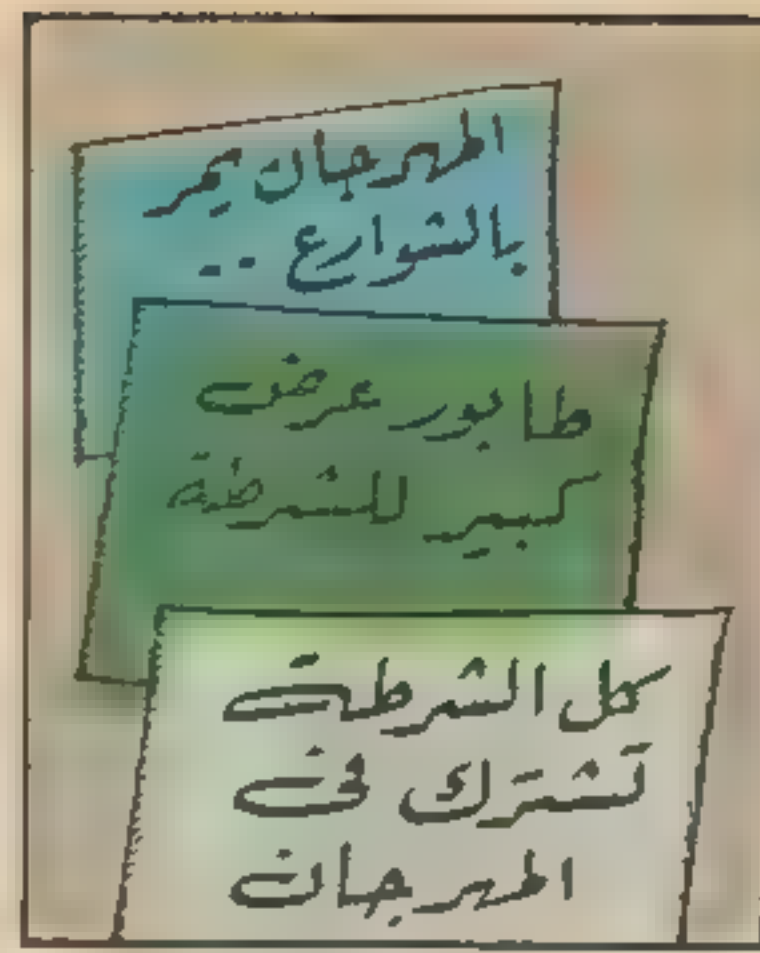 المهرجان يمر
بالشوارع ..
طابور عرض
كبير للشرطة
كل الشرطة
تشترك فى
المهرجان